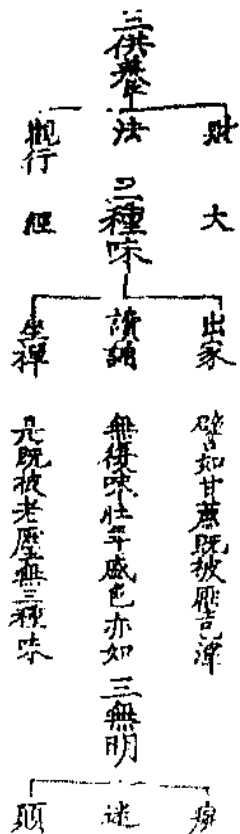 三供養
財
法
觀行
大
經
三種味
出家
讀誦
坐禪
譬如甘蔗既被壓滓
無復味壯年盛色亦如
是既被老壓無三種味
三無明
迷
顛